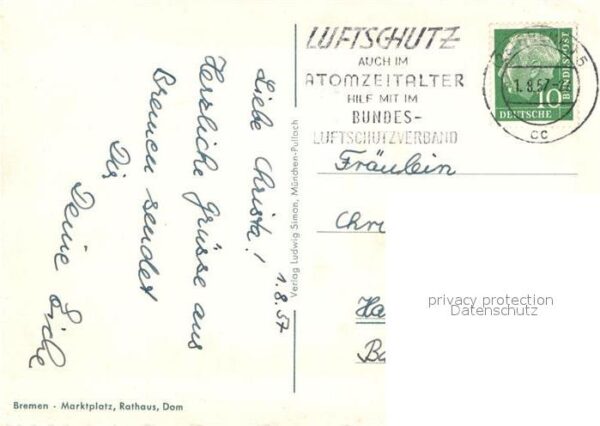 Liebe Christa!
1.8.57
Herzliche Grüsse aus
Bremen sendet
Dir
Deine
Verlag Ludwig Simon, München-Pullach
Bremen · Marktplatz, Rathaus, Dom
LUFTSCHUTZ
AUCH IM
ATOMZEITALTER
HILF MIT IM
BUNDES-
LUFTSCHUTZVERBAND
1.8.57
cc
10
DEUTSCHE
BUNDESPOST
Fräulein
Chr
Ha
Ba
privacy protection
Datenschutz